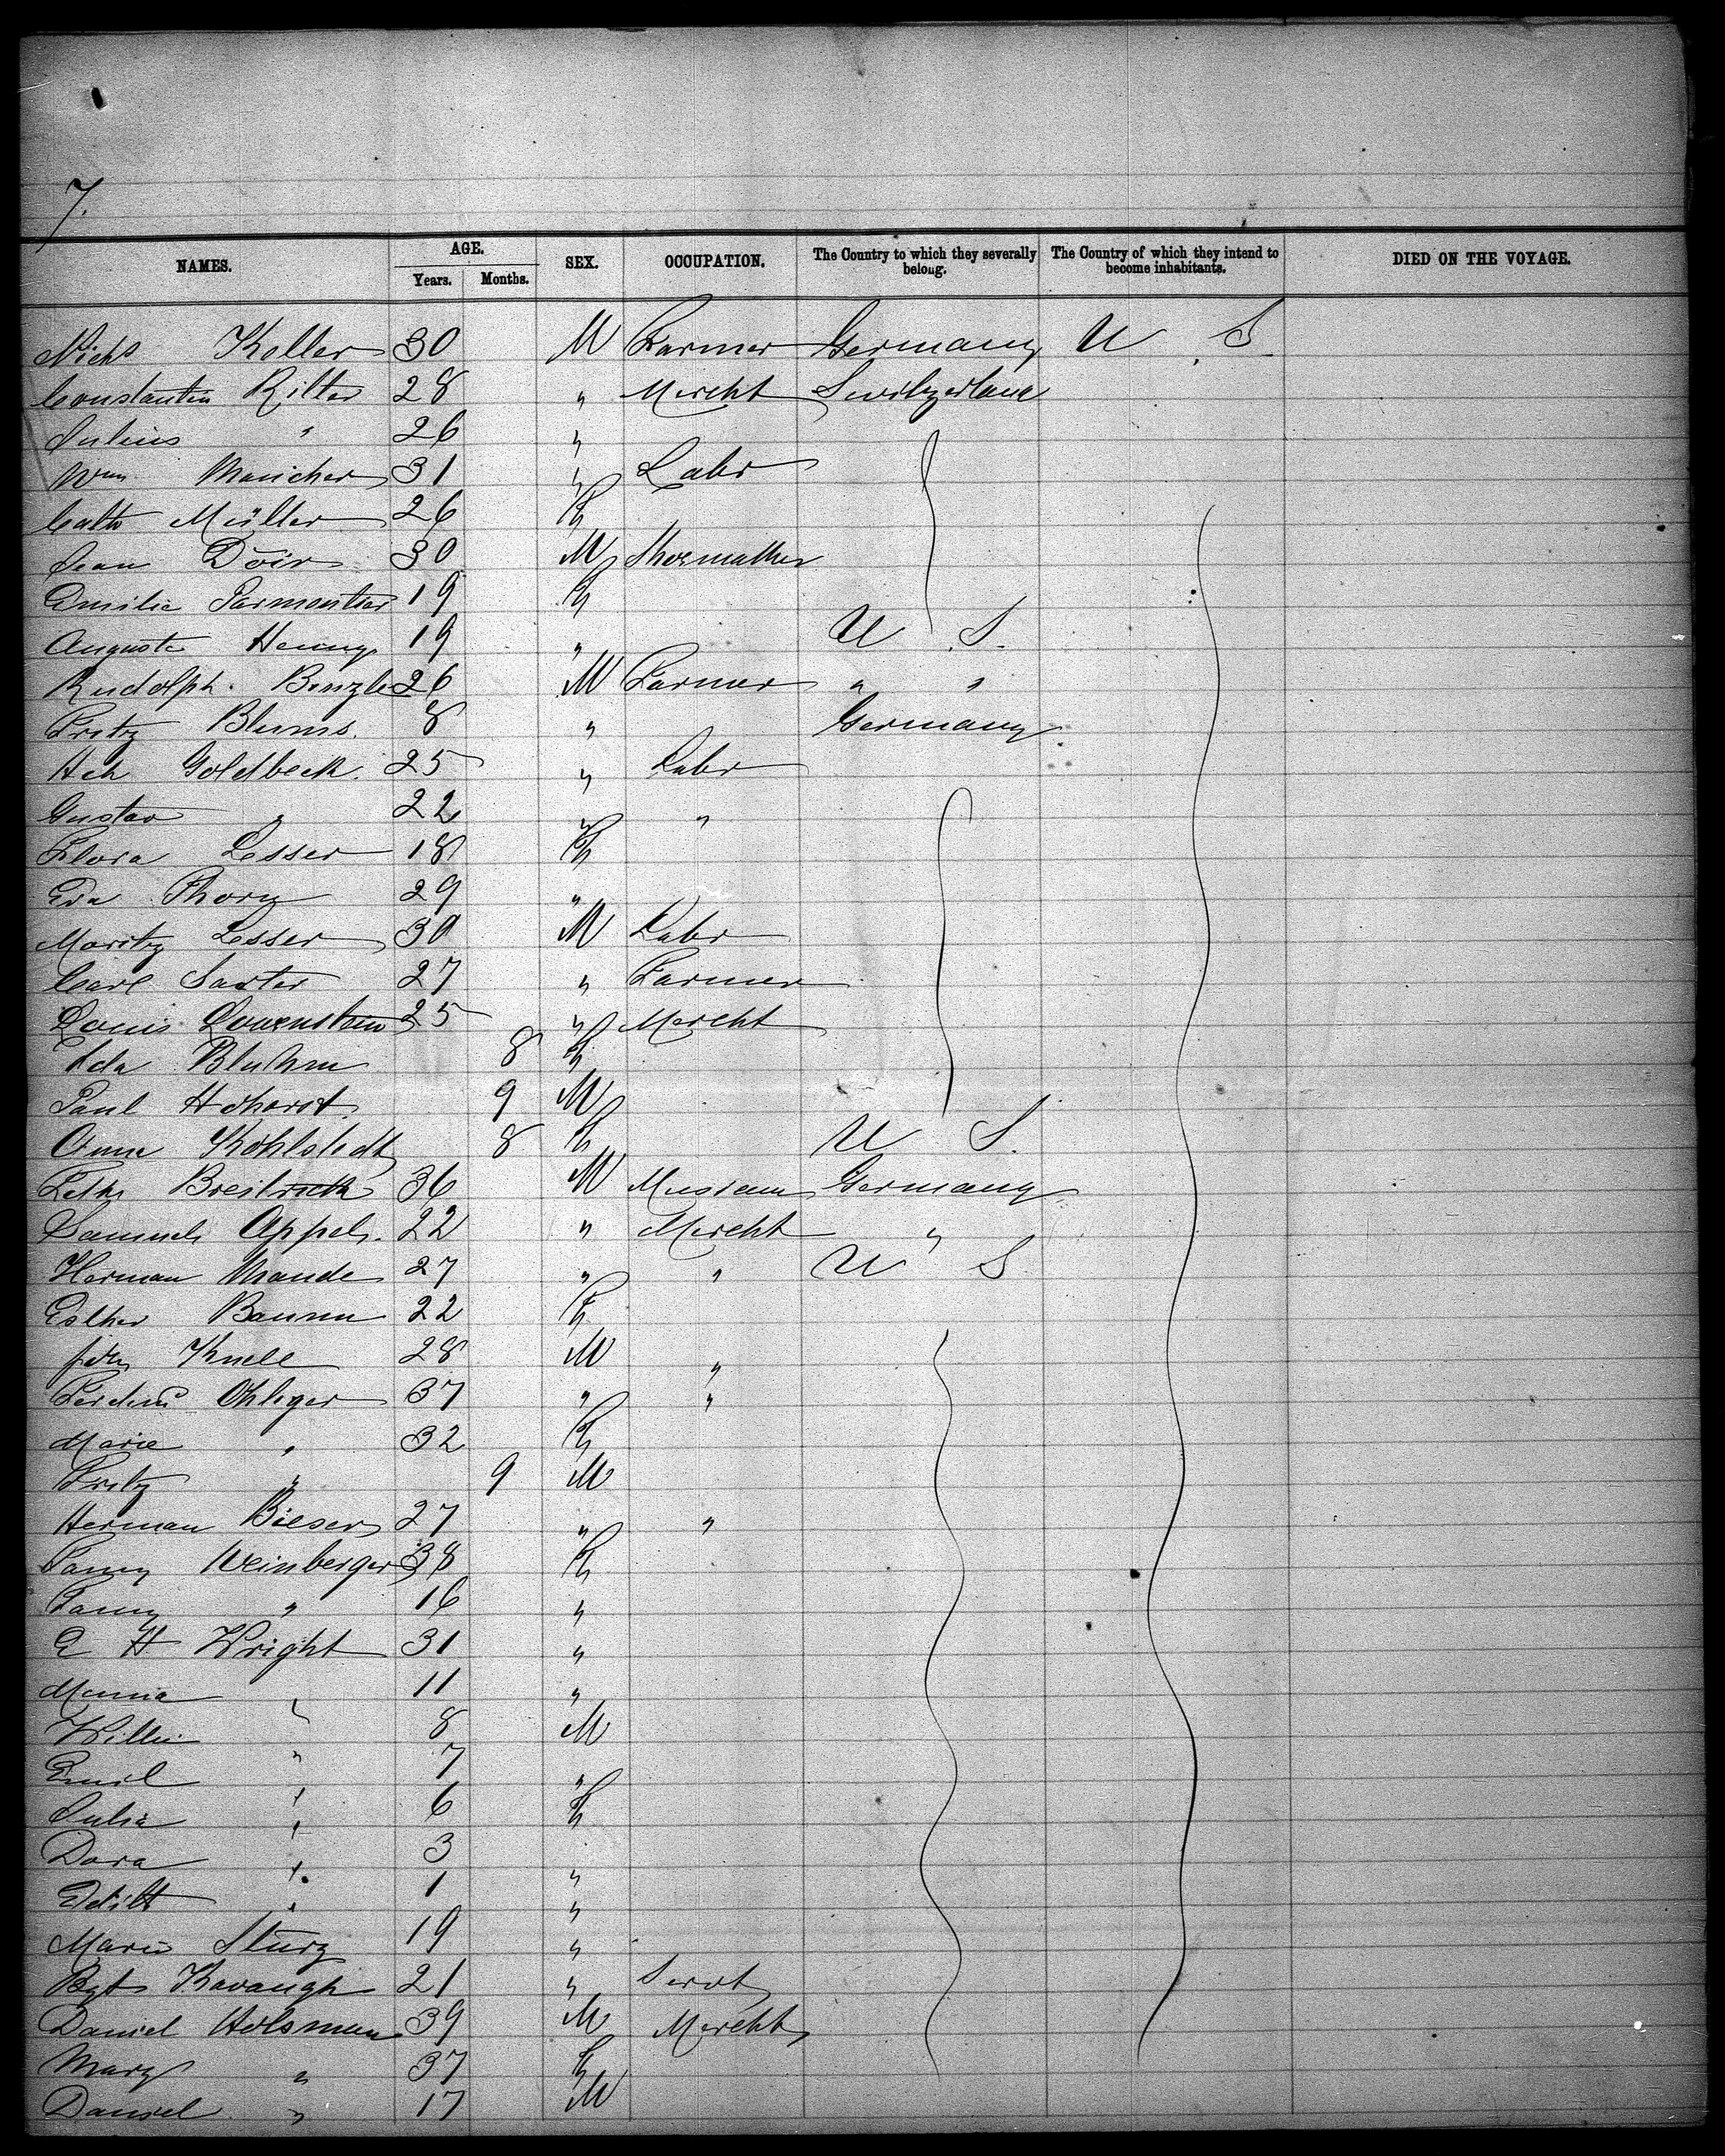 7.
NAMES. AGE. Years. Months. SEX. OCCUPATION. The Country to which they severally belong. The Country of which they intend to become inhabitants. DIED ON THE VOYAGE.
Nichs Keller 30 M Farmer Germany U S
Constantin Ritter 28 " Mercht Switzerland
Julius " 26 "
Wm Manicher 31 " Labr
Cath Müller 26 F
Jean Döir 30 M Shoemaker
Emilie Parmentier 19 F
Auguste Henny 19 " U S.
Rudolph. Benzle 26 M Farmer " "
Fritz Blums. 8 " Germany
Hch Goldbeck. 25 " Labr
Gustav " 22 " "
Flora Lesser 18 F
Eva Thorz 29 "
Moritz Lesser 30 M Labr
Carl Saxter 27 " Farmer
Louis Louenstein 25 " Mercht
Ida Bluhm 8 F
Paul Hohorst. 9 M
Anna Kohlstedt 8 F U S.
36 M Musician Germany
Samuel Appel. 22 " Mercht "
Herman Mande 27 " " U S
Esther Baumn 22 F
Knell 28 M "
Ferdind Ohliger 37 " "
Marie " 32 F
Fritz " 9 M
Herman Bieser 27 " "
Fanny Weinberger 38 F
Fanny " 16 "
E H Wright 31 "
Minnia " 11 "
Willie " 8 M
Emil " 7 "
Julia " 6 F
Dora " 3 "
Edith " 1 "
Marie Sturz 19 "
Bgt Kavaugh 21 " Servt
Daniel Holsman 39 M Mercht
Mary " 37 F
Daniel " 17 M